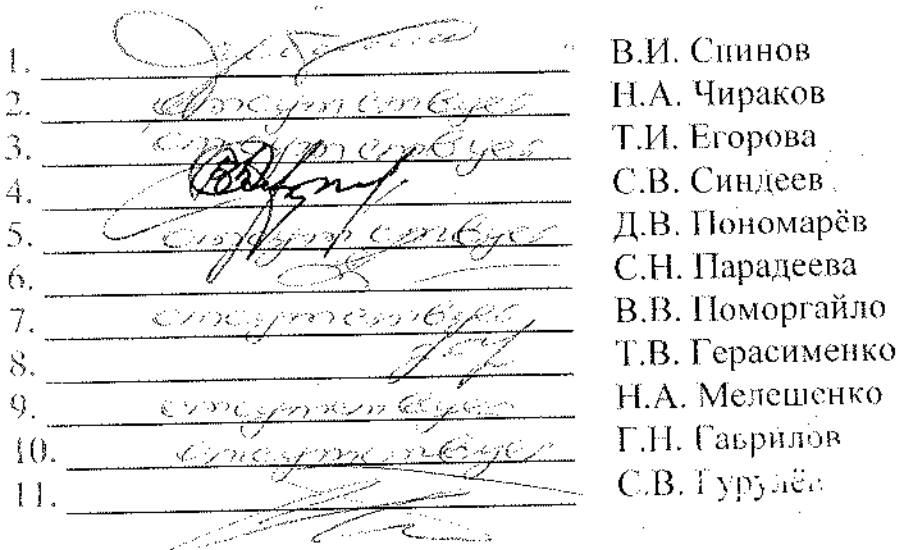 1. В.И. Спинов
2. отсутствует Н.А. Чираков
3. отсутствует Т.И. Егорова
4. С.В. Синдеев
5. отсутствует Д.В. Пономарёв
6. С.Н. Парадеева
7. отсутствует В.В. Поморгайло
8. Т.В. Герасименко
9. отсутствует Н.А. Мелешенко
10. отсутствует Г.Н. Гаврилов
11. С.В. Гурулёв